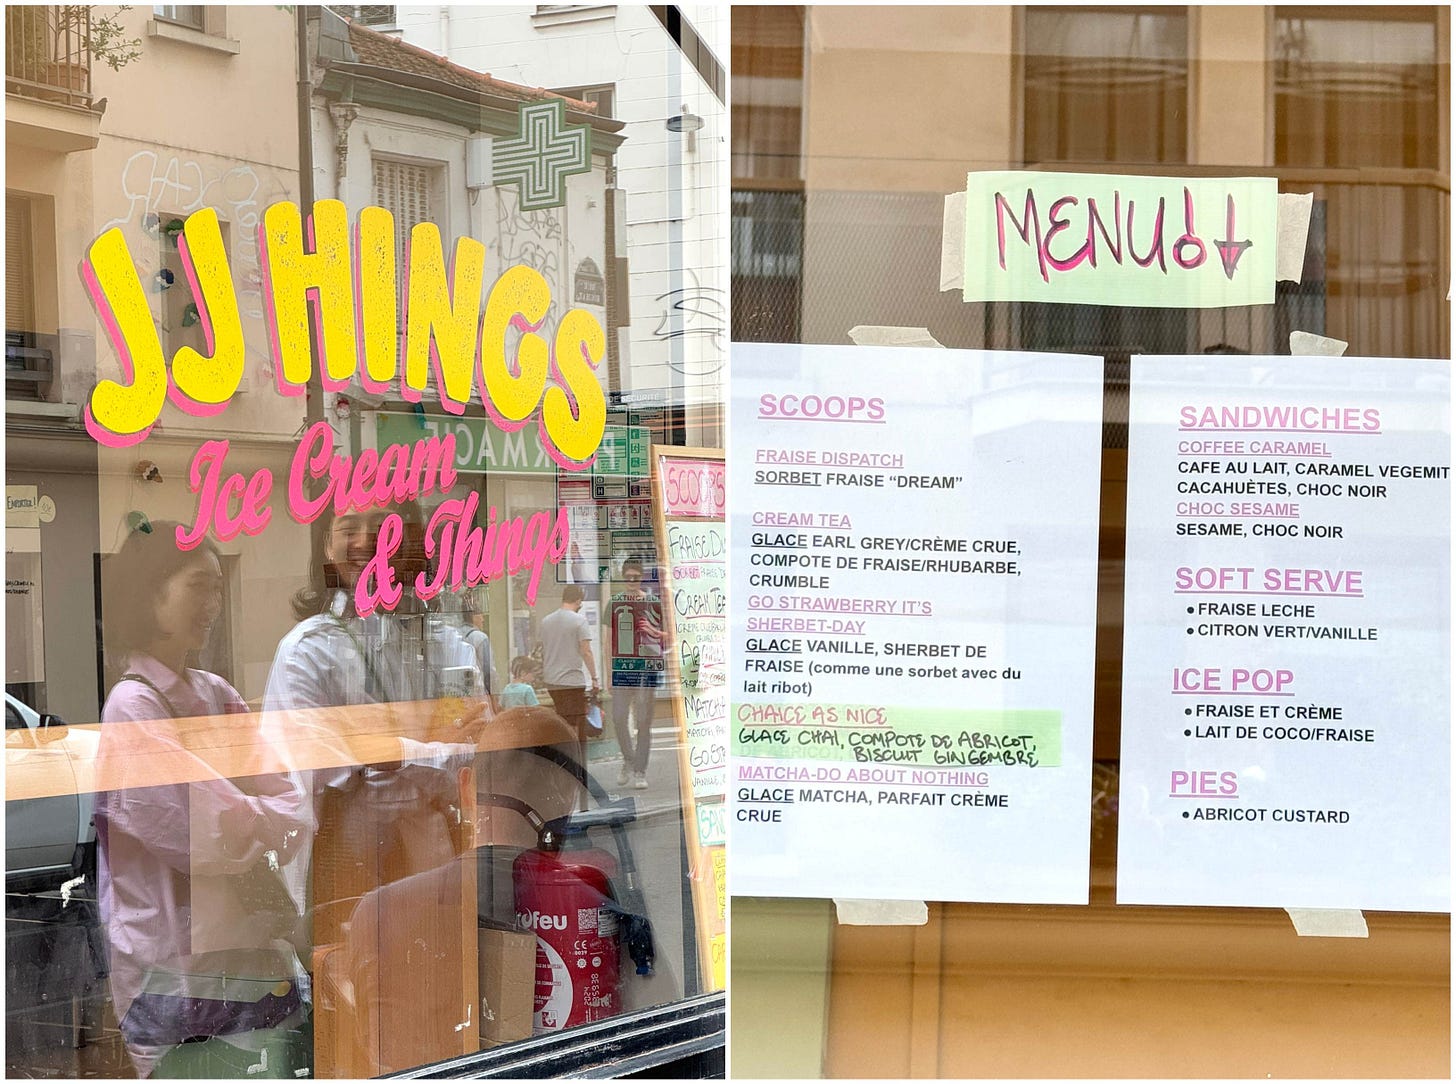 JJ HINGS
Ice Cream
& Things
PHARMACIE
EMPORTER!
DE SÉCURITÉ
EXTINCTEUR
AB
SCOOPS
FRAISE D
SORBET
CREAM TEA
MATCHA
GO ST
VANILLE,
ofeu
CE
MENU
SCOOPS
FRAISE DISPATCH
SORBET FRAISE “DREAM”
CREAM TEA
GLACE EARL GREY/CRÈME CRUE,
COMPOTE DE FRAISE/RHUBARBE,
CRUMBLE
GO STRAWBERRY IT'S
SHERBET-DAY
GLACE VANILLE, SHERBET DE
FRAISE (comme une sorbet avec du
lait ribot)
CHAICE AS NICE
GLACE CHAI, COMPOTE DE ABRICOT,
BISCUIT GINGEMBRE
MATCHA-DO ABOUT NOTHING
GLACE MATCHA, PARFAIT CRÈME
CRUE
SANDWICHES
COFFEE CARAMEL
CAFE AU LAIT, CARAMEL VEGEMIT
CACAHUÈTES, CHOC NOIR
CHOC SESAME
SESAME, CHOC NOIR
SOFT SERVE
• FRAISE LECHE
• CITRON VERT/VANILLE
ICE POP
• FRAISE ET CRÈME
• LAIT DE COCO/FRAISE
PIES
• ABRICOT CUSTARD